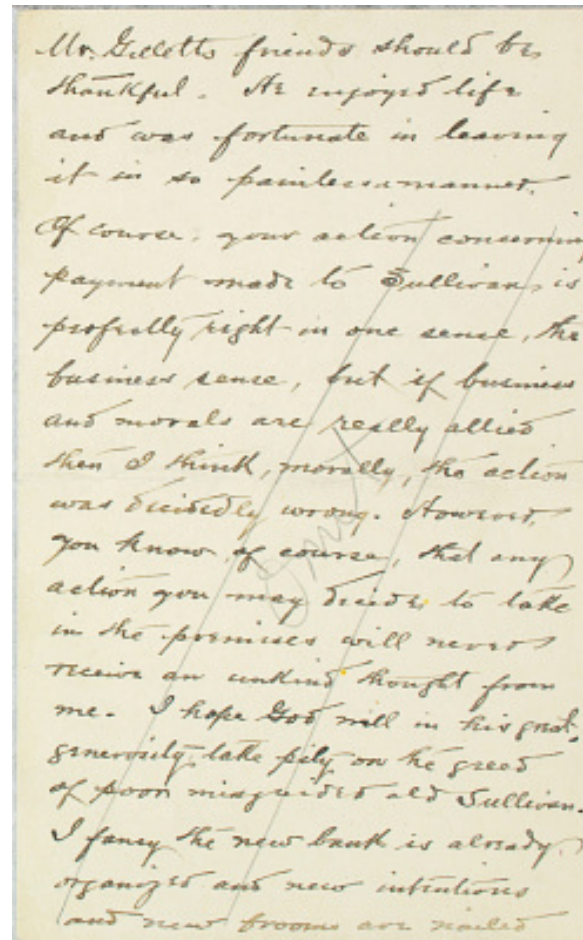 Mr. Gilletts friends should be
thankful. He enjoyed life
and was fortunate in leaving
it in so painless a manner.
Of course, your action concerning
payment made to Sullivan, is
profectly right in one sense, the
business sense, but if business
and morals are really allied
then I think, morally, the action
was decidedly wrong. However,
you know, of course, that any
action you may decide to take
in the premises will never
receive an unkind thought from
me. I hope God will in his great
generosity take pity on the greed
of poor misguided old Sullivan.
I fancy the new bank is already
organized and new intentions
and new brooms are nailed
Omit